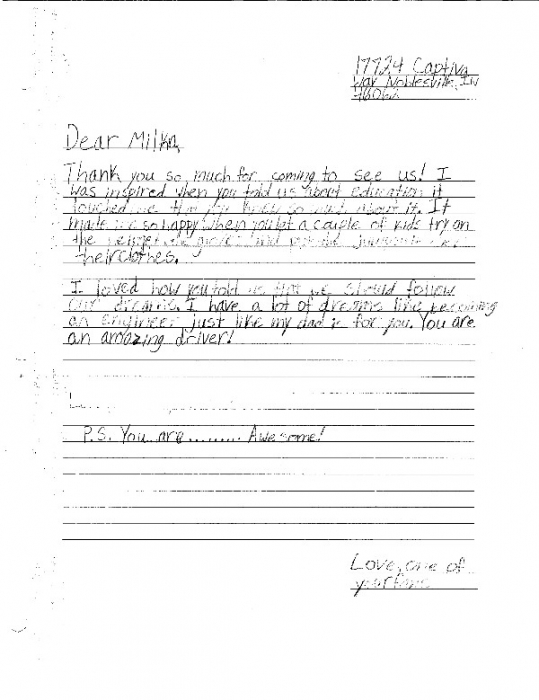 17724 Captiva
Way Noblesville, IN
46062
Dear Milka,
Thank you so much for coming to see us! I
was inspired when you told us about education it
touched me that you know so much about it. It
made me so happy when you let a couple of kids try on
the helmet, the gloves and
their clothes.
I loved how you told us that we should follow
our dreams. I have a lot of dreams like becoming
an engineer just like my dad is for you. You are
an amazing driver!
P.S. You are......... Awesome!
Love, one of
your fans